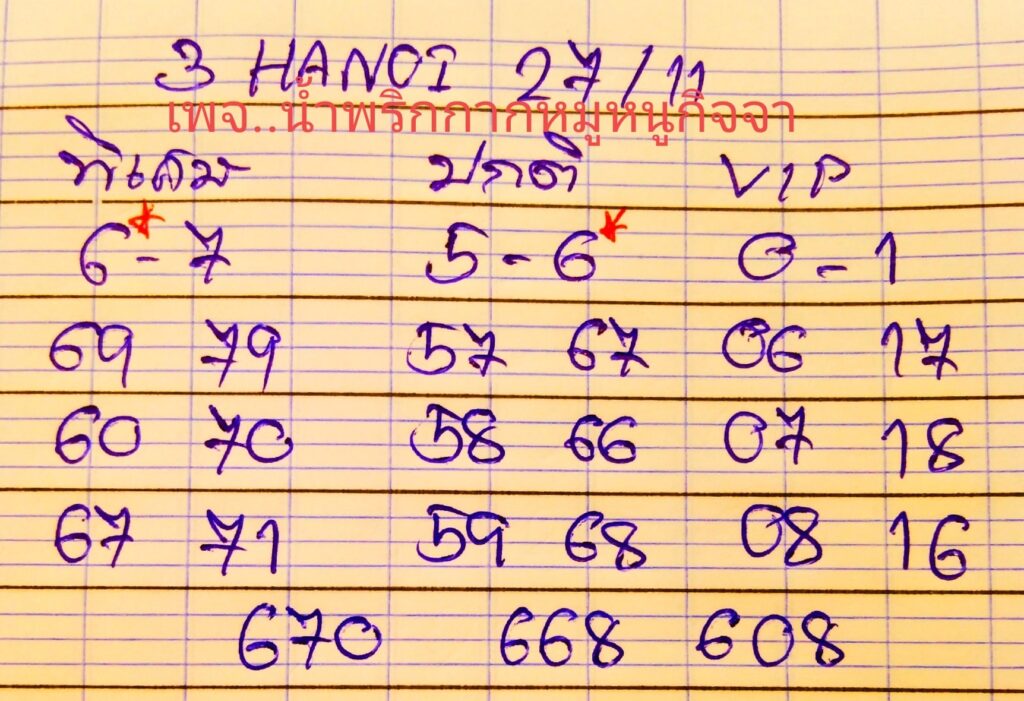 3 HANOI 27/11
เพจ..น้ำพริกกากหมูหนูกิจจา
พิเศษ ปกติ VIP
6* - 7 5 - 6* 0 - 1
69 79 57 67 06 17
60 70 58 66 07 18
67 71 59 68 08 16
670 668 608